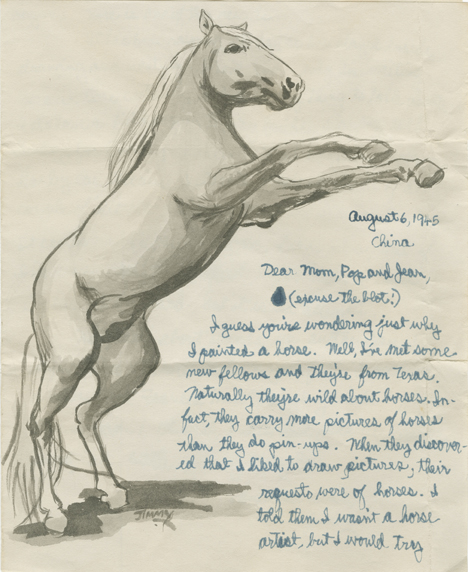 August 6, 1945
China
Dear Mom, Pop and Jean,
(excuse the blot!)
I guess you're wondering just why
I painted a horse. Well, I've met some
new fellows and they're from Texas.
Naturally they're wild about horses. In-
fact, they carry more pictures of horses
than they do pin-ups. When they discover-
ed that I liked to draw pictures, their
requests were of horses. I
told them I wasn't a horse
artist, but I would try
Jimmy